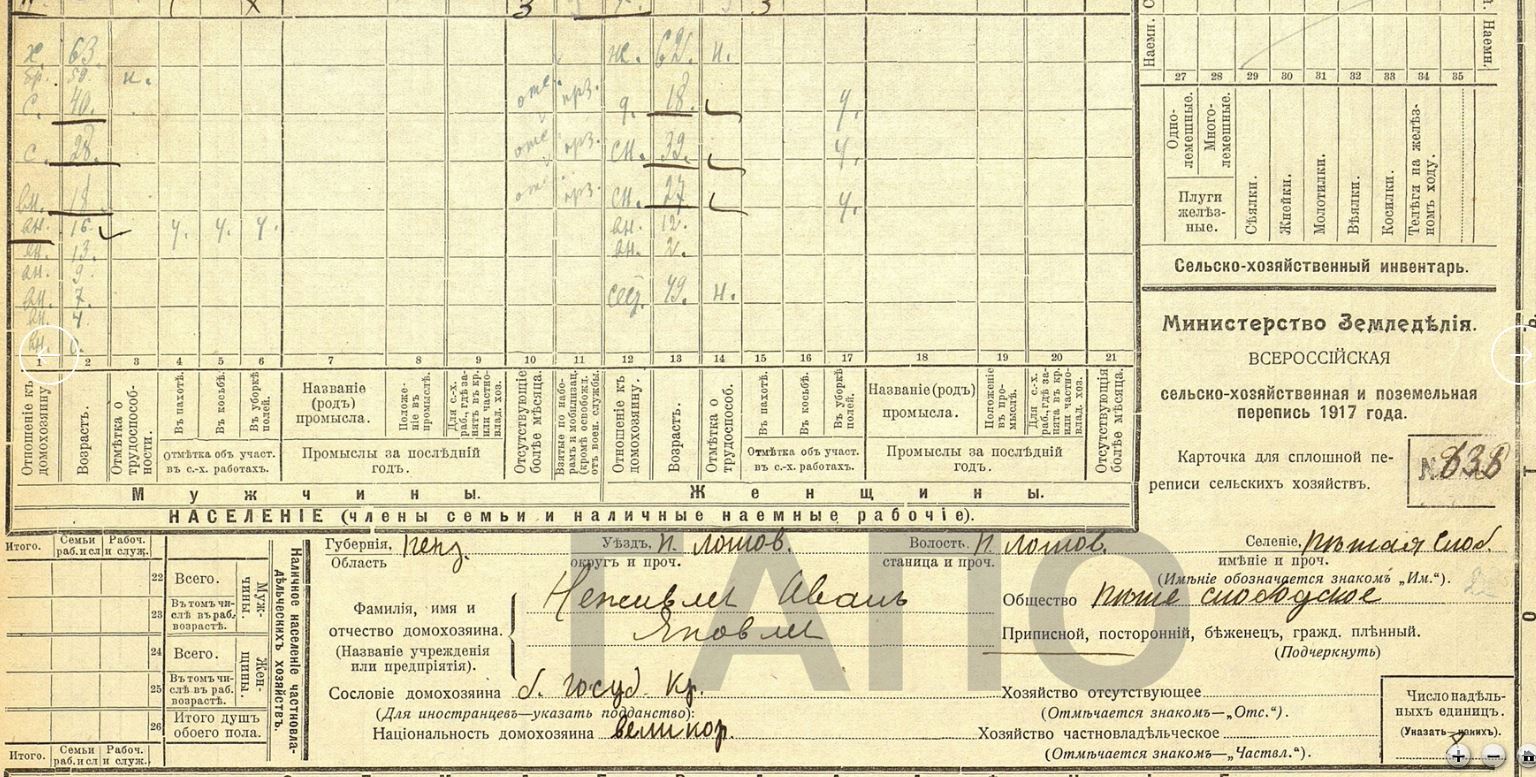 3 3
х. 63. ж. 62. н.
бр. 50. н.
с. 40. отс. прз. д. 18. ч.
с. 28. отс. прз. сн. 39. ч.
вн. 18. отс. прз. сн. 27. ч.
вн. 16. ч. ч. ч. вн. 12.
вн. 13. вн. 2.
вн. 9.
вн. 7. сес. 49. н.
вн. 4.
вн.
1 2 3 4 5 6 7 8 9 10 11 12 13 14 15 16 17 18 19 20 21
Отношеніе къ домохозяину.
Возрастъ.
Отмѣтка о трудоспособности.
Въ пахотѣ.
Въ косьбѣ.
Въ уборкѣ полей.
Отмѣтка объ участ. въ с.-х. работахъ.
Названіе (родъ) промысла.
Положеніе въ промыслѣ.
Для с.-х. раб., гдѣ занятъ въ кр. или частновлад. хоз.
Промыслы за послѣдній годъ.
Отсутствующіе болѣе мѣсяца.
Взятые по наборамъ и мобилизац. (кромѣ освобожд. отъ воен. службы.
Отношеніе къ домохозяину.
Возрастъ.
Отмѣтка о трудоспособ.
Въ пахотѣ.
Въ косьбѣ.
Въ уборкѣ полей.
Отмѣтка объ участ. въ с.-х. работахъ.
Названіе (родъ) промысла.
Положеніе въ промыслѣ.
Для с.-х. раб., гдѣ занята въ кр. или частновлад. хоз.
Промыслы за послѣдній годъ.
Отсутствующія болѣе мѣсяца.
Мужчины. Женщины.
НАСЕЛЕНІЕ (члены семьи и наличные наемные рабочіе).
Наемн. Наемн.
27 28 29 30 31 32 33 34 35
Одно-лемешные.
Много-лемешные.
Плуги желѣзные.
Сѣялки.
Жнейки.
Молотилки.
Вѣялки.
Косилки.
Телѣга на желѣзномъ ходу.
Сельско-хозяйственный инвентарь.
Министерство Земледѣлія.
ВСЕРОССІЙСКАЯ
сельско-хозяйственная и поземельная
перепись 1917 года.
Карточка для сплошной пе-
реписи сельскихъ хозяйствъ.
№ 838
Итого. Семьи раб. и сл. Рабоч. и служ.
22 Всего.
23 Въ томъ числѣ въ раб. возрастѣ.
Мужчины.
24 Всего.
25 Въ томъ числѣ въ раб. возрастѣ.
Женщины.
26 Итого душъ обоего пола.
Итого. Семьи раб. и сл. Рабоч. и служ.
Наличное населеніе частновладѣльческихъ хозяйствъ.
Губернія, Пенз. Уѣздъ, Н. Ломов. Волость Н. Ломов. Селеніе, Пѣшая Слоб.
Область округъ и проч. станица и проч. имѣніе и проч.
(Имѣніе обозначается знакомъ „Им.“).
Фамилія, имя и отчество домохозяина.
(Названіе учрежденія или предпріятія).
Иванъ
Яковлев
Общество Пѣше слободское
Приписной, посторонній, бѣженецъ, гражд. плѣнный.
(Подчеркнуть)
Сословіе домохозяина б. госуд. Кр.
(Для иностранцевъ—указать подданство):
Національность домохозяина великор.
Хозяйство отсутствующее
(Отмѣчается знакомъ—„Отс.“).
Хозяйство частновладѣльческое
(Отмѣчается знакомъ—„Частвл.“).
Число надѣльныхъ единиц.
(Указать—какихъ).
ГАПО